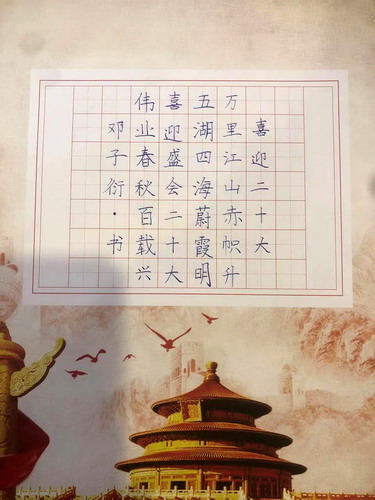 喜迎二十大
万里江山赤帜升
五湖四海蔚霞明
喜迎盛会二十大
伟业春秋百载兴
邓子衍·书